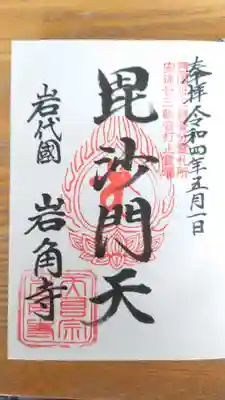 奉拝 令和四年五月一日
毘沙門天
岩代國 岩角寺